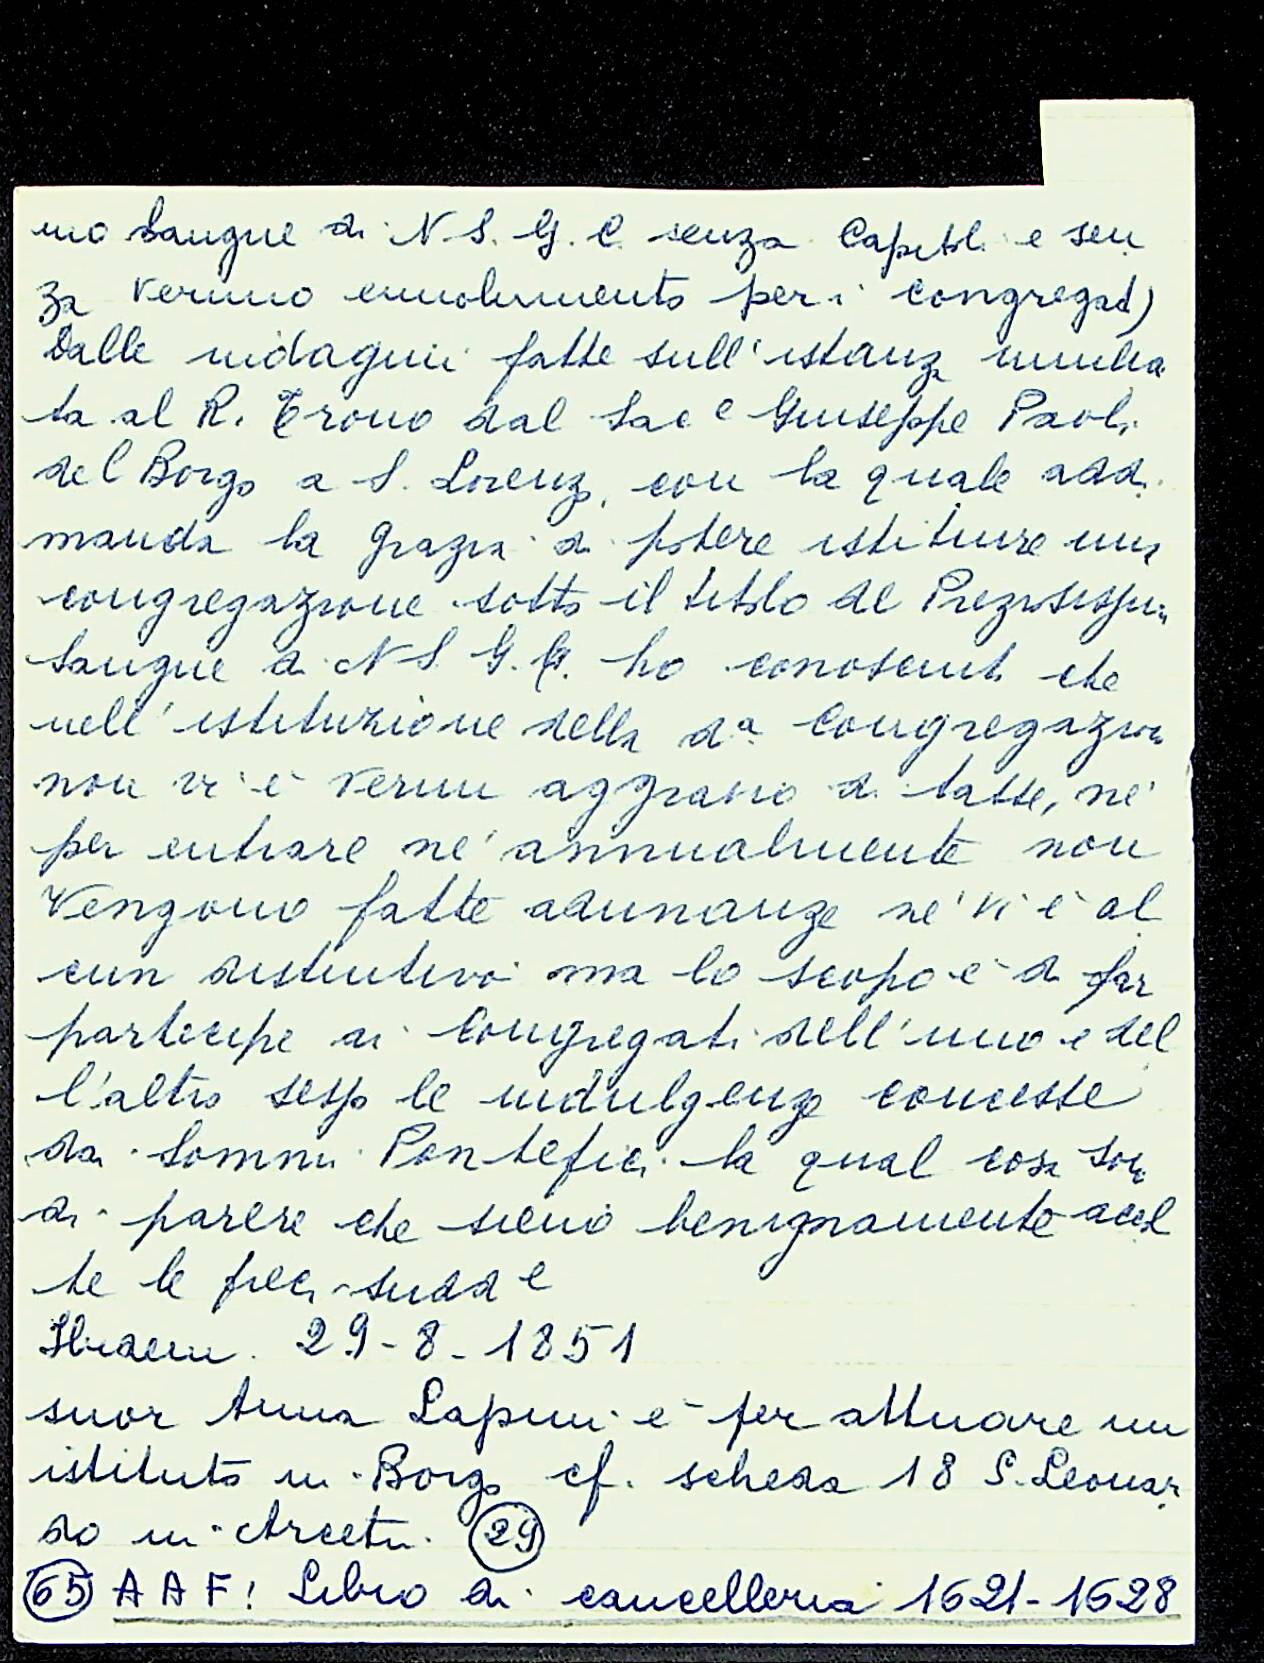 mo Sangue di N S. G. C. senza Capitoli e sen
za verumo emolumento per i congregati)
Dalle indagini fatte sull'istanza umilia
ta al R. Trono dal Sac e Giuseppe Paoli
del Borgo a S. Lorenzo, con la quale add.
manda la grazia di potere istituire una
congregazione sotto il titolo del Preziosissimo
Sangue di N S. G. C. ho conosciuti che
nell'istituzione della da Congregazione
non vi è verun aggravio di tasse, né
per entrare né annualmente non
vengono fatte adunanze né vi è al
cun distintivo ma lo scopo è di far
partecipe ai Congregati dell'uno e del
l'altro sesso le indulgenze concesse
dai Sommi Pontefici la qual cosa son
di parere che sieno benignamente accol
te le preci sudd e
Ibidem. 29-8-1851
suor Anna Lapini è per attuare un
istituto in Borgo cf. scheda 18 S. Leonar
do in Arcetri. (29)
(65) A A F! Libro di cancelleria 1621-1628